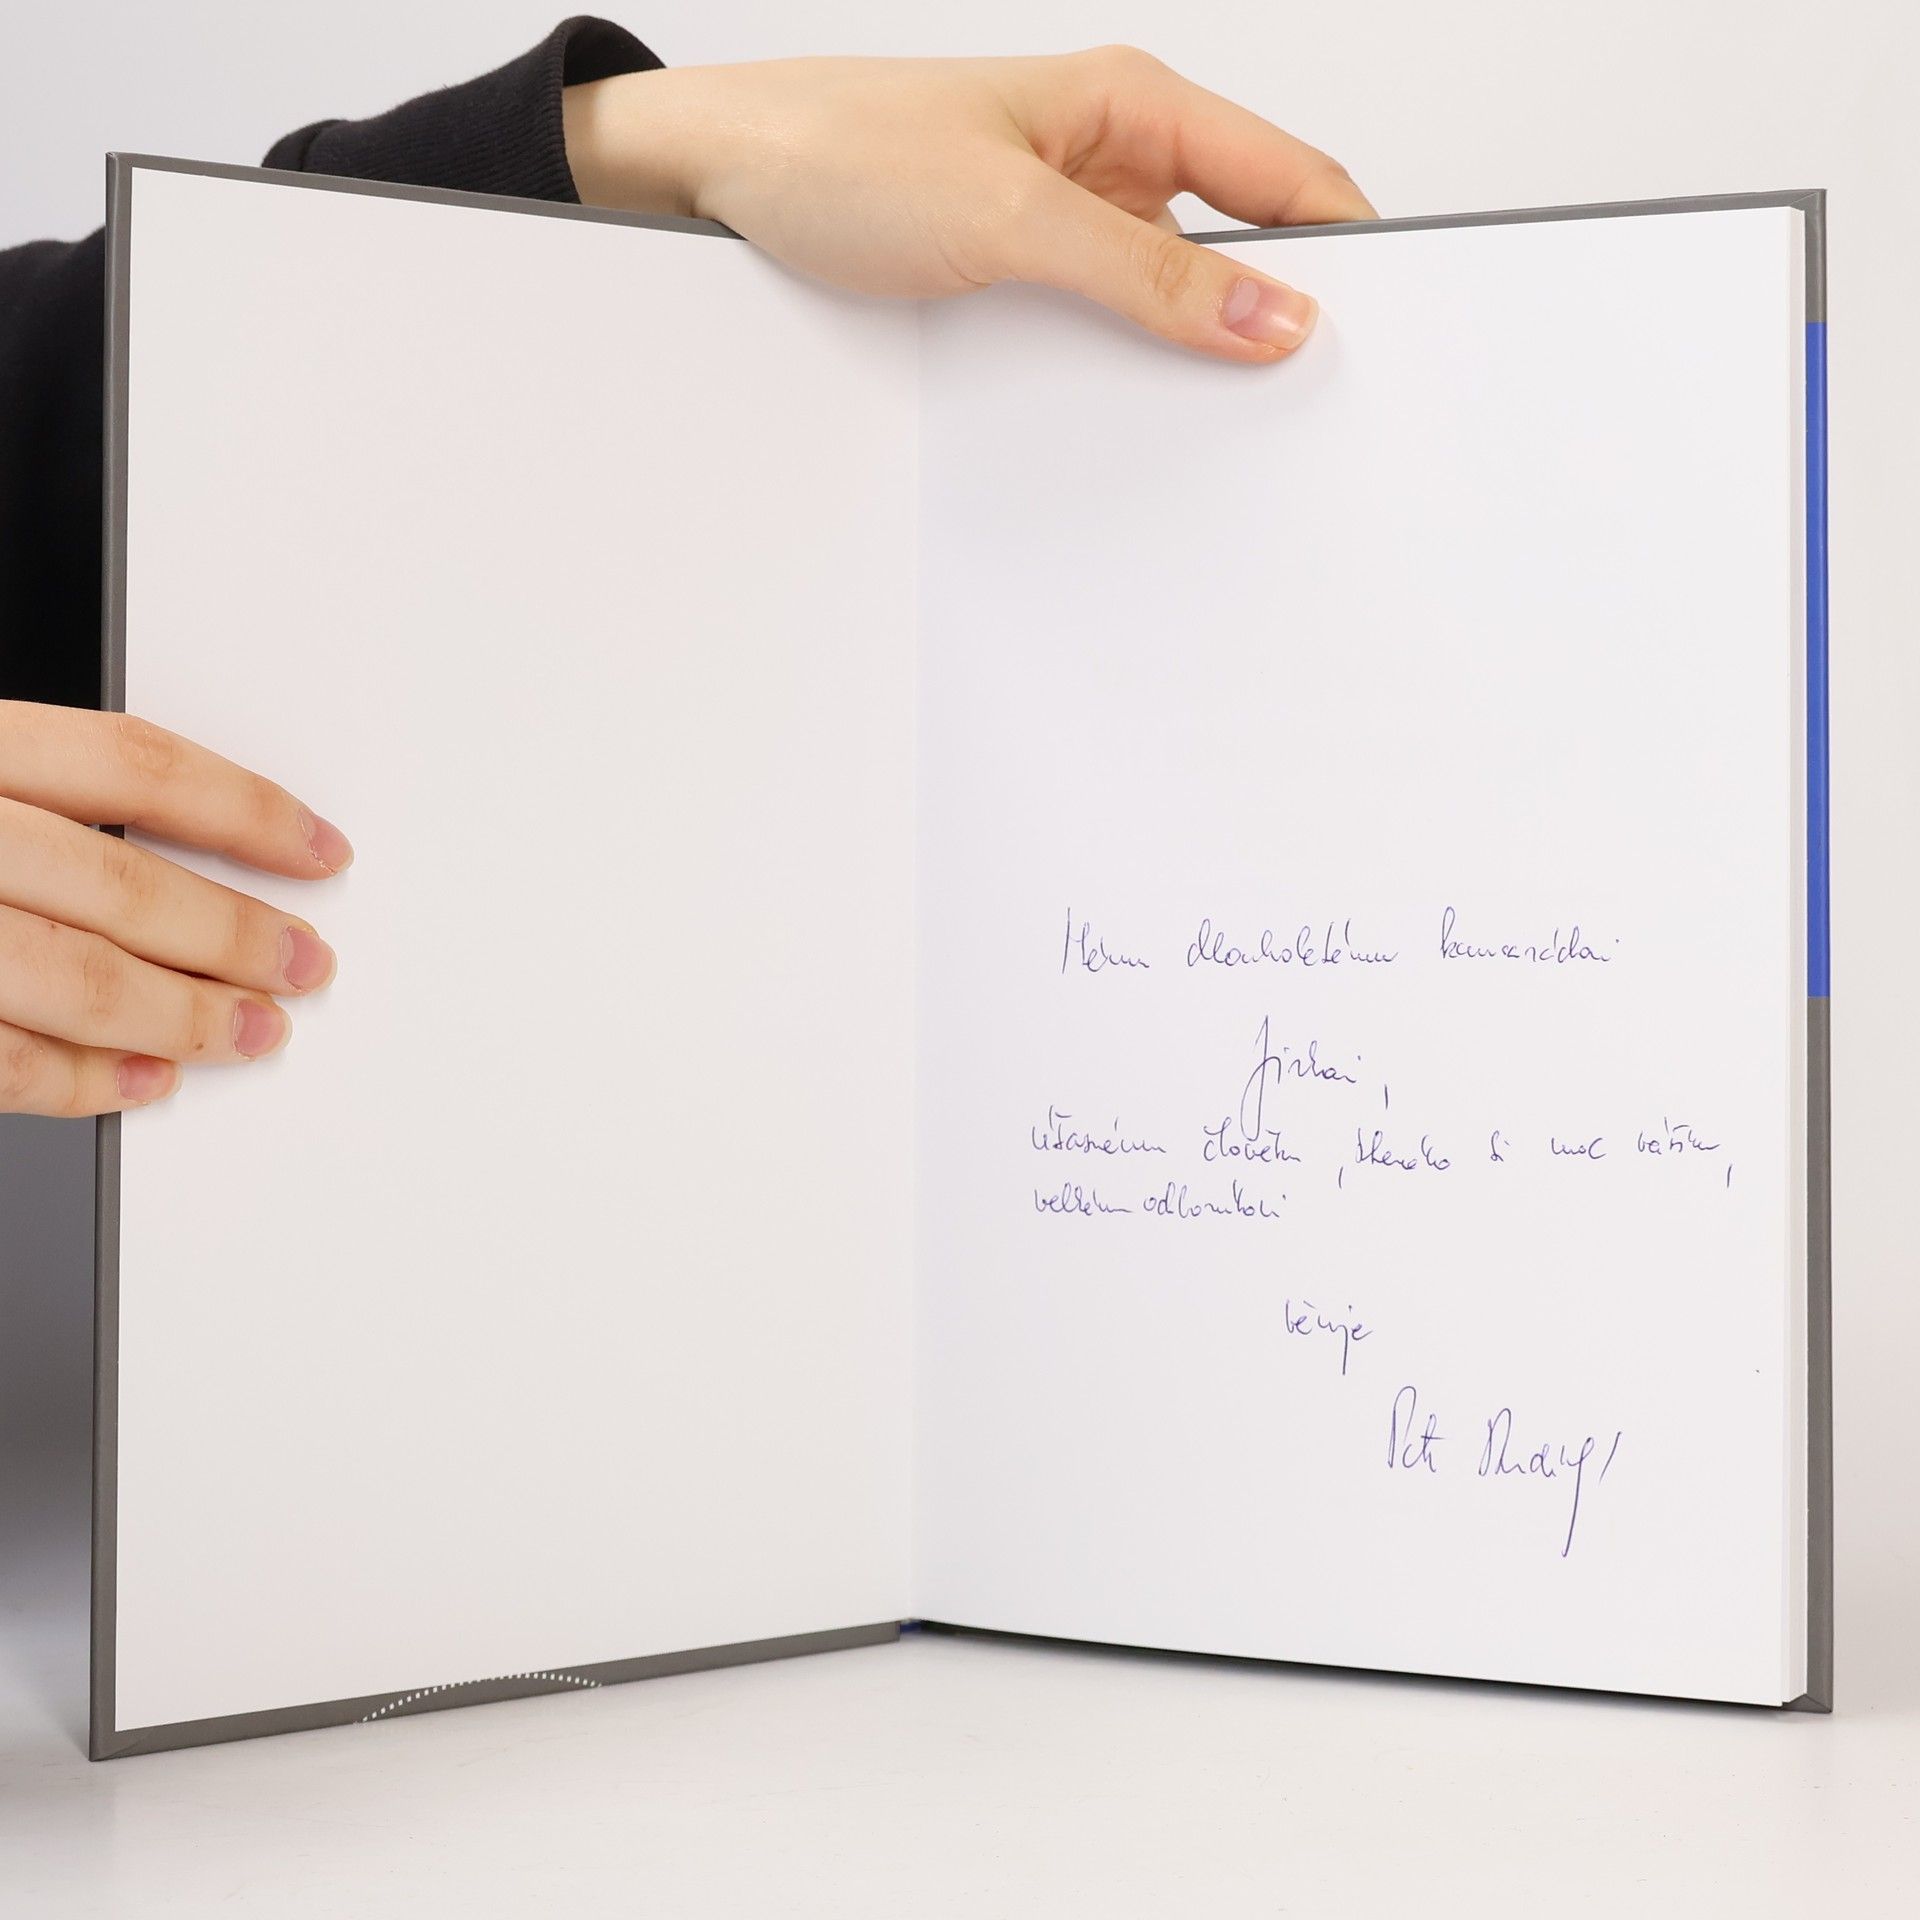 Mému dlouholetému kamarádovi
Jirkovi,
úžasnému člověku, kterého si moc vážím,
velkému odborníkovi
věnuje
Petr